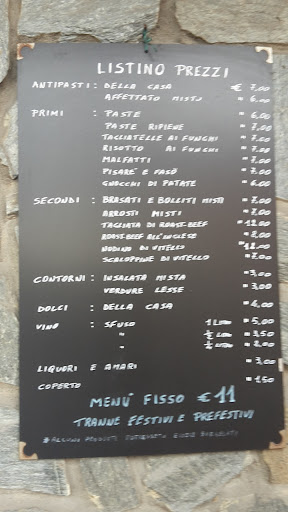 LISTINO PREZZI
ANTIPASTI : DELLA CASA € 7,00
AFFETTATO MISTO " 6,00
PRIMI : PASTE " 6,00
PASTE RIPIENE " 7,00
TAGLIATELLE AI FUNGHI " 7,00
RISOTTO AI FUNGHI " 7,00
MALFATTI " 7,00
PISARE' E FASÖ " 7,00
GNOCCHI DI PATATE " 6,00
SECONDI : BRASATI E BOLLITI MISTI " 7,00
ARROSTI MISTI " 7,00
TAGLIATA DI ROAST-BEEF " 12,00
ROAST-BEEF ALL'INGLESE
NODINO DI VITELLO " 12,00
SCALOPPINE DI VITELLO " 7,00
CONTORNI : INSALATA MISTA " 3,00
VERDURE LESSE " 3,00
DOLCI : DELLA CASA " 4,00
VINO : SFUSO 1 LITRO " 5,00
" ½ LITRO " 3,50
" ¼ LITRO " 2,00
LIQUORI E AMARI " 3,00
COPERTO " 1,50
MENU' FISSO € 11
TRANNE FESTIVI E PREFESTIVI
* ALCUNI PRODOTTI SURGELATI